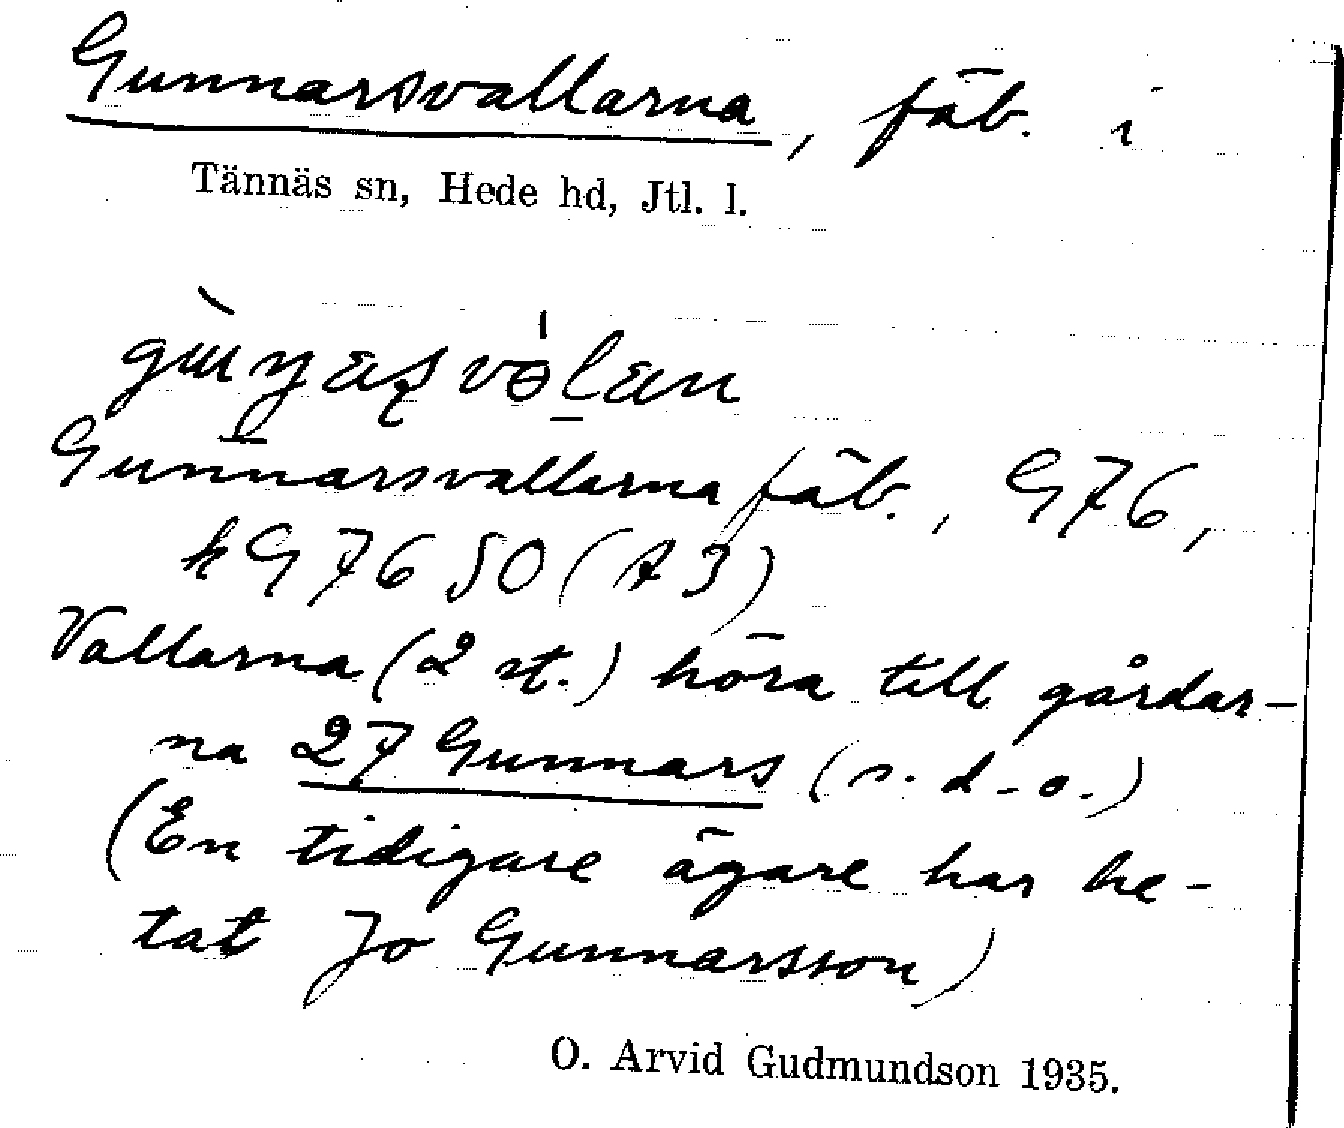 Gunnarsvallarna, fäb. i
Tännäs sn, Hede hd, Jtl. l.
Gunnarsvallarna fäb., G76,
kG7650 (A3)
Vallarna (2 st.) höra till gårdar-
na 27 Gunnars (s. d-o.)
(En tidigare ägare har he-
tat Jo Gunnarsson)
O. Arvid Gudmundson 1935.